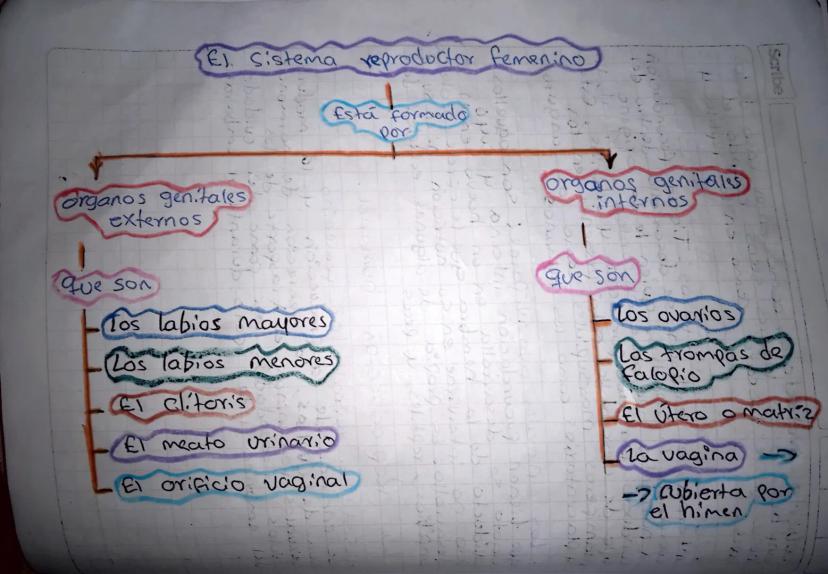 El sistema reproductor femenino
Está formado
por
órganos genitales
externos
que son
Los labios mayores
Los labios menores
El clítoris
El meato urinario
El orificio vaginal
organos genitales
internos
que son
Los ovarios
Las trompas de
falopio
El útero o matriz
La vagina →
→ cubierta por
el himen
Scribe